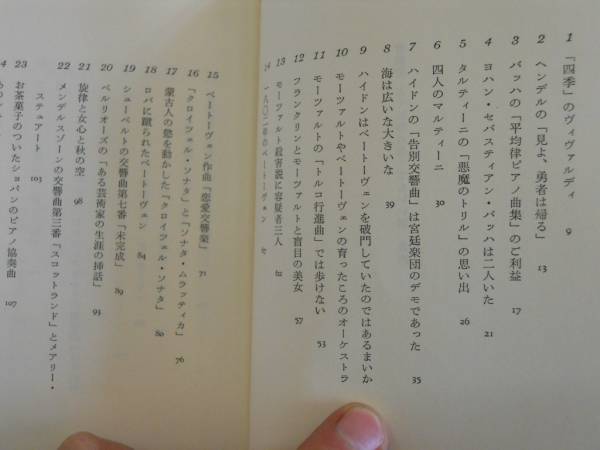 1 「四季」のヴィヴァルディ 9
2 ヘンデルの「見よ、勇者は帰る」 13
3 バッハの「平均律ピアノ曲集」のご利益 17
4 ヨハン・セバスティアン・バッハは二人いた 21
5 タルティーニの「悪魔のトリル」の思い出 26
6 四人のマルティーニ 30
7 ハイドンの「告別交響曲」は宮廷楽団のデモであった 35
8 海は広いな大きいな 39
9 ハイドンはベートーヴェンを破門していたのではあるまいか
10 モーツァルトやベートーヴェンの育ったころのオーケストラ
11 モーツァルトの「トルコ行進曲」では歩けない 53
12 フランクリンとモーツァルトと盲目の美女 57
13 モーツァルト殺害説に容疑者三人 62
14 一八〇二年のベートーヴェン
15 ベートーヴェン作曲「恋愛交響楽」 71
16 「クロイツェル・ソナタ」と「ソナタ・ムラッティカ」 76
17 蒙古人の慾を動かした「クロイツェル・ソナタ」 80
18 ロバに蹴られたベートーヴェン 84
19 シューベルトの交響曲第七番「未完成」 89
20 ベルリオーズの「ある芸術家の生涯の挿話」 93
21 旋律と女心と秋の空 98
22 メンデルスゾーンの交響曲第三番「スコットランド」とメアリー・
ステュアート 103
23 お茶菓子のついたショパンのピアノ協奏曲 107